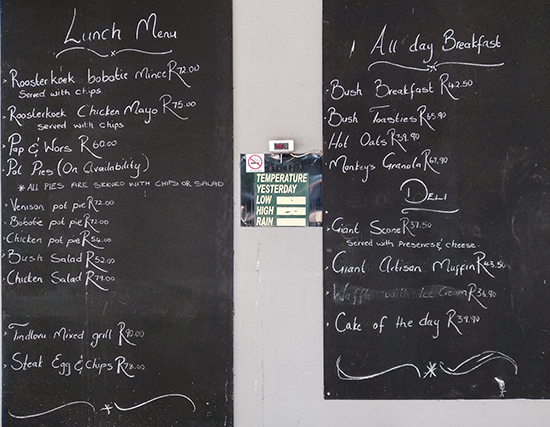 Lunch Menu
Roosterkoek bobotie Mince R72.00
Served with chips
Roosterkoek Chicken Mayo R75.00
served with chips
Pap & Wors R60.00
Pot Pies (On Availability)
* ALL PIES ARE SERVED WITH CHIPS OR SALAD
Venison pot pie R72.00
Bobotie pot pie R72.00
Chicken pot pie R54.00
Bush Salad R52.00
Chicken Salad R79.00
Tindlovu Mixed grill R90.00
Steak Egg & Chips R78.00
TEMPERATURE
YESTERDAY
LOW
HIGH
RAIN
All day Breakfast
Bush Breakfast R42.50
Bush Toasties R65.90
Hot Oats R39.90
Monkeys Granola R67.90
DELI
Giant Scone R37.50
Served with Preserves & cheese.
Giant Artisan Muffin R43.50
Waffle with Ice Cream R36.90
Cake of the day R39.90